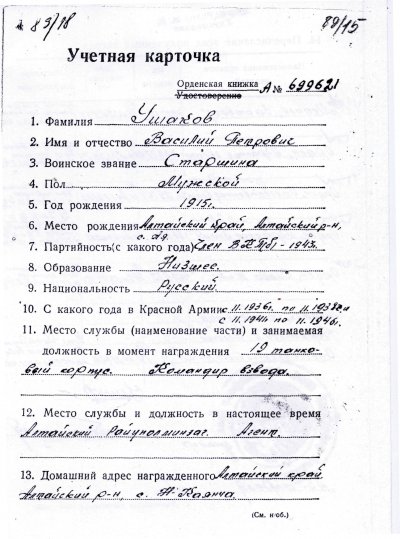 83/18
89/15
Учетная карточка
Орденская книжка А № 699621
Удостоверение
1. Фамилия Ушаков
2. Имя и отчество Василий Петрович
3. Воинское звание Старшина
4. Пол Мужской
5. Год рождения 1915.
6. Место рождения Алтайский край, Алтайский р-н,
7. Партийность (с какого года) Член ВКП(б) - 1943.
8. Образование Низшее.
9. Национальность Русский.
10. С какого года в Красной Армии с 11.1936г. по 11.1938г. и
с 11.1941 по 11.1946г.
11. Место службы (наименование части) и занимаемая
должность в момент награждения 19 танко-
вый корпус. Командир взвода.
12. Место службы и должность в настоящее время
Алтайский Райуполминзаг. Агент.
13. Домашний адрес награжденного Алтайский край
Алтайский р-н, с. Н-Каянча.
(См. н/об.)